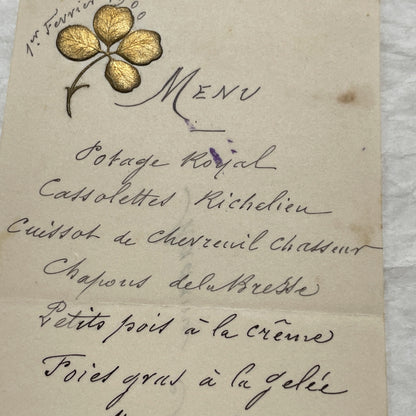 1er Fevrier 1900
MENU
Potage Royal
Cassolettes Richelieu
Cuissot de Chevreuil Chasseur
Chapons de la Bresse
Petits pois à la crême
Foies gras à la gelée